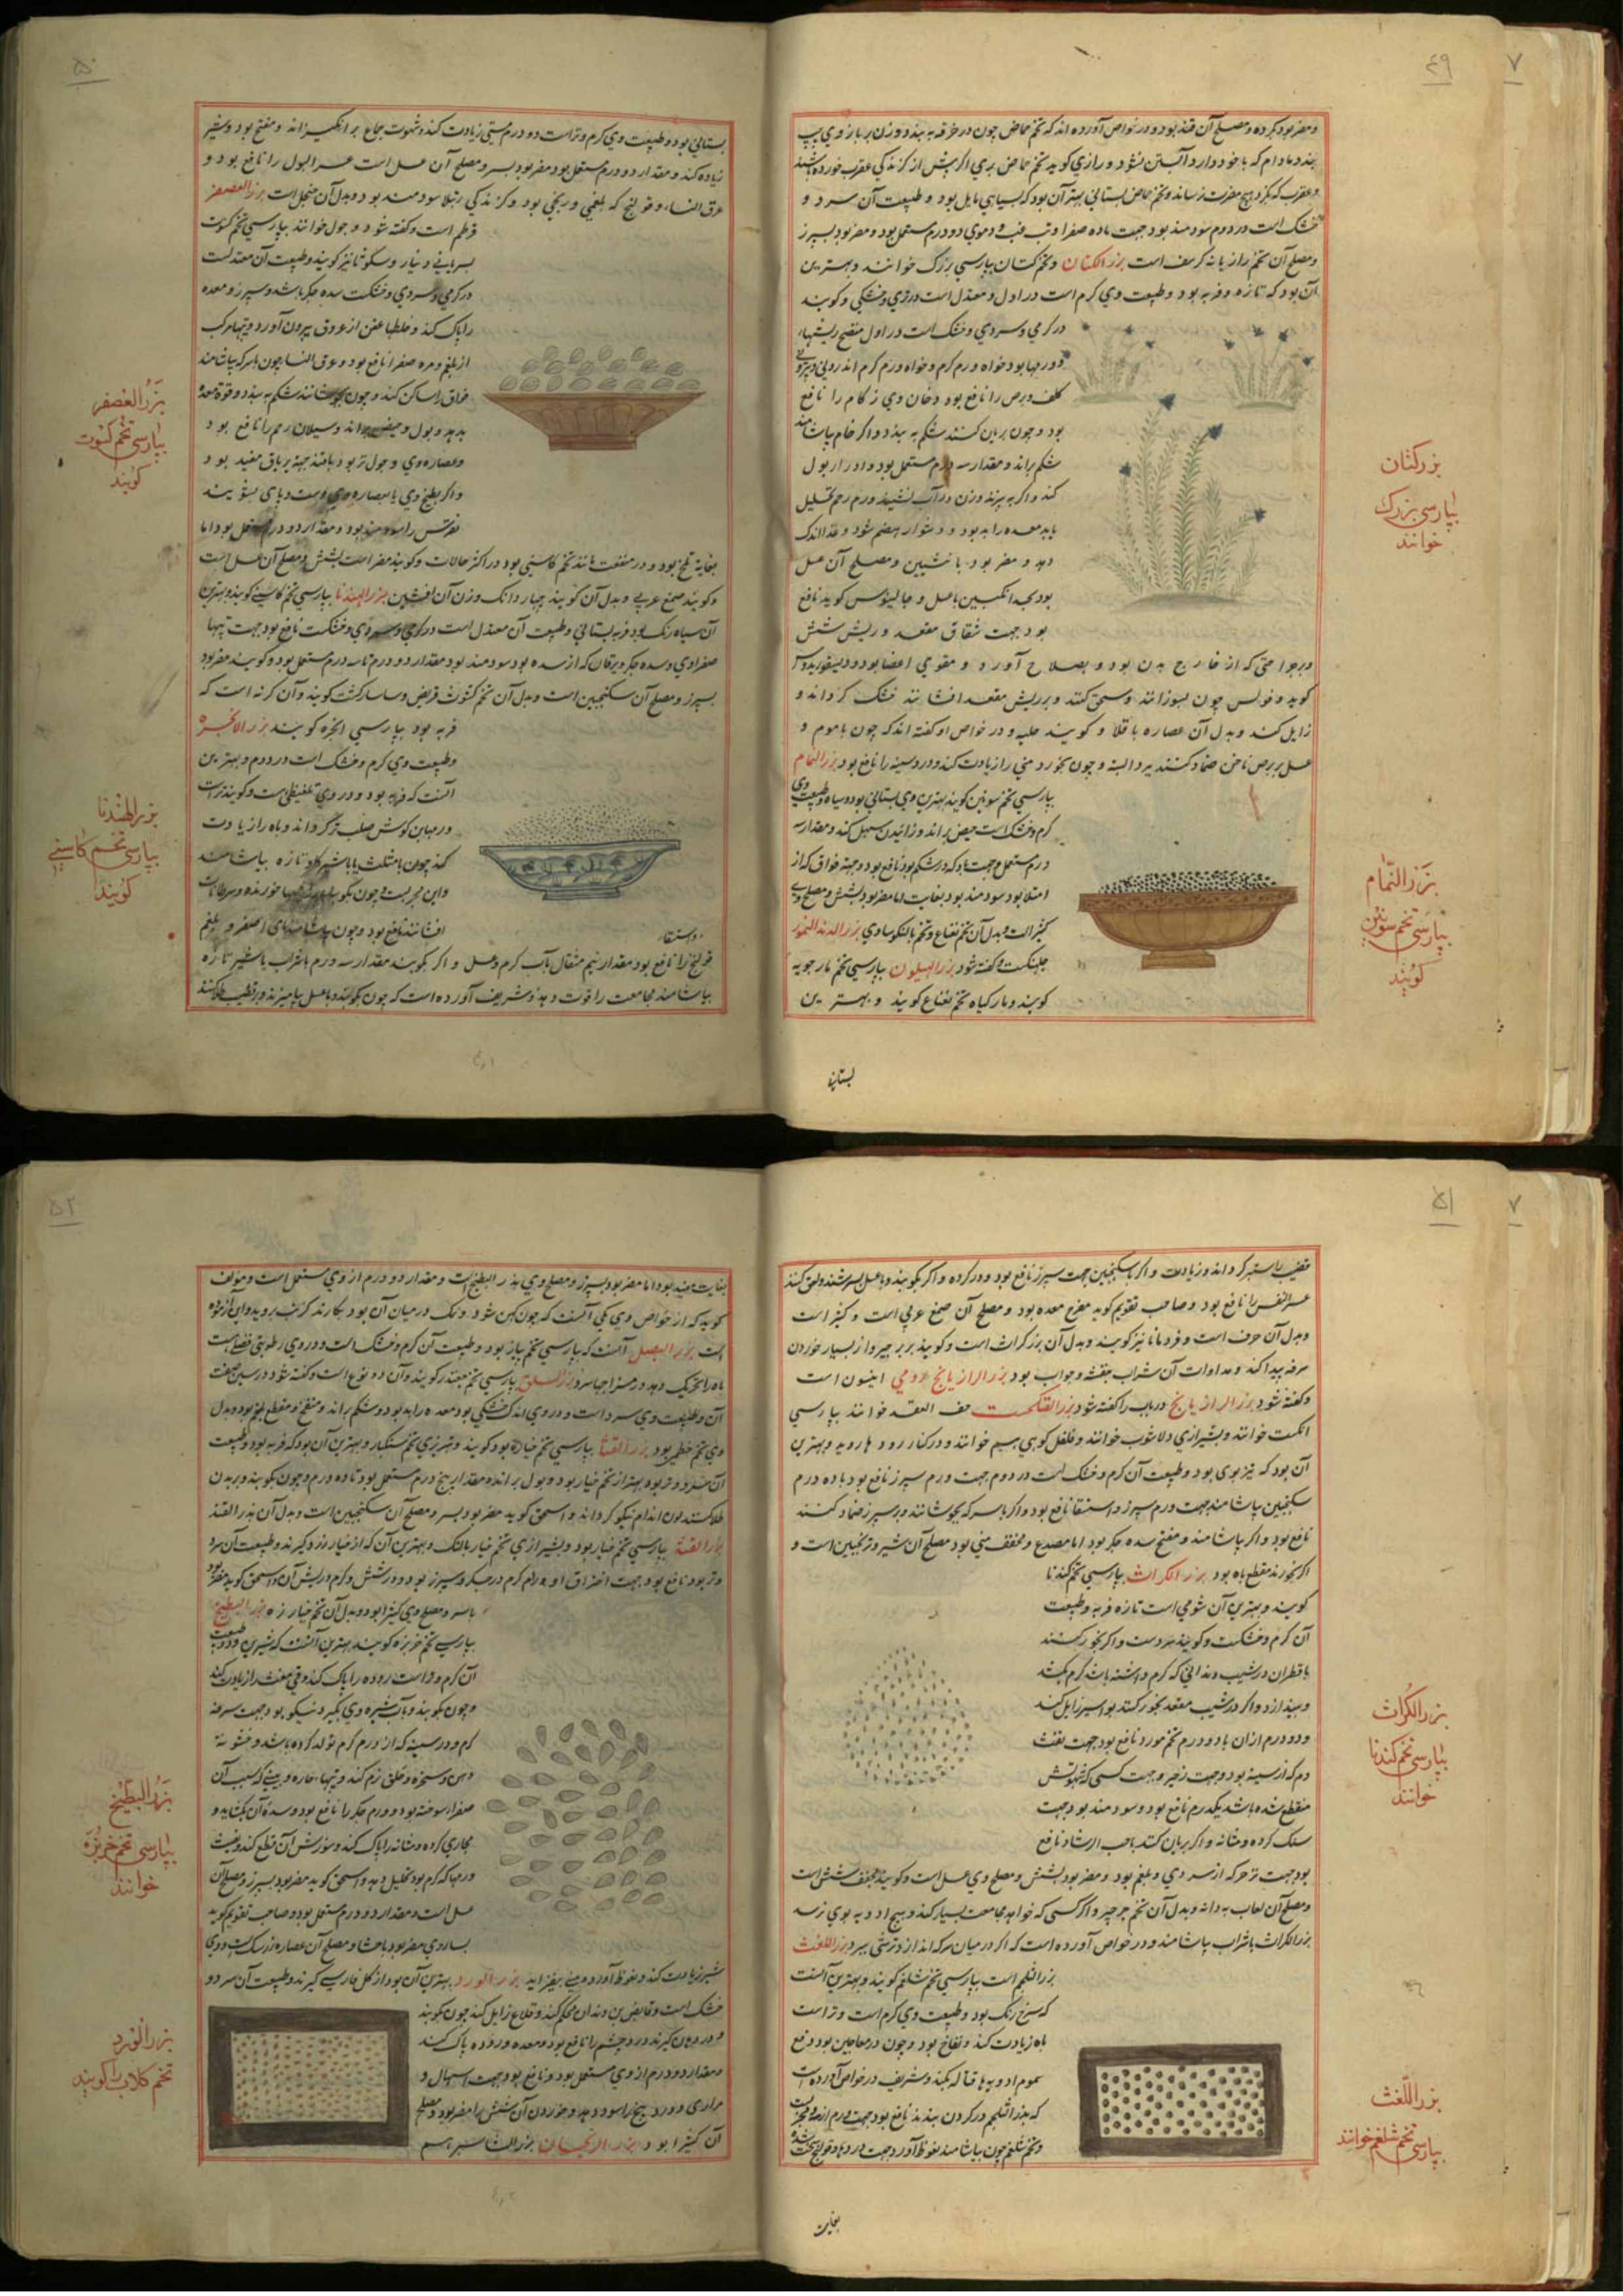 ۷
۴۹
و مضر بود بکرده و مصلح آن قند بود و در خواص آورده اند که تخم حماض چون در خرقه بندند و زن بر بازوی چپ
بندد مادام که با خود دارد آبستن نشود و رازی کوید تخم حماض بری اکر پیش از کزندکی عقرب خورده باشند
و عقرب که بکزد هیچ مضرت نرساند و تخم حماض بستانی بهتر آن بود که بسیاهی مایل بود و طبیعت آن سرد و
خشک است در دوم سودمند بود جهت ماده صفرا و تب و دموی دو درم مستعمل بود و مضر بود بسپرز
و مصلح آن تخم رازیانه کرفس است بزر الکتان و تخم کتان بپارسی بزرک خوانند و بهترین
آن بود که تازه و فربه بود و طبیعت وی کرم است در اول و معتدل است در تری و خشکی و کویند
در کرمی و سردی و خشک است در اول منضج ریشها
و ورمها بود خواه ورم کرم و خواه ورم کرم اندرونی و بیرونی
کلف و برص را نافع بود و دخان وی زکام را نافع
بود و چون بریان کنند شکم ببندد و اکر خام بیاشامند
شکم براند و مقدار سه درم مستعمل بود و ادرار بول
کند و اکر بپزند و زن در آب نشیند ورم رحم تحلیل
یابد معده را بد بود و دشوار هضم شود و غذا اندک
دهد و مضر بود بانثیین و مصلح آن عسل
بود بعد انکبین با عسل و جالینوس کوید نافع
بود جهت شقاق مقعد و ریش شش
و جراحتی که از خارج بدن بود و بصلاح آورد و مقوی اعضا بود و دیسقوریدوس
کوید و فولس چون بسوزانند و سحق کنند و بر ریش مقعد افشانند خشک کرداند و
زایل کند و بدل آن عصاره باقلا و کویند حلبه و در خواص او کفته اند که چون با موم و
عسل بر برص ناخن ضماد کنند ببرد البته و چون بخورد منی را زیادت کند و درد سینه را نافع بود بزر النمام
بپارسی تخم سوسنبر کویند بهترین وی بستانی بود و سیاه و طبیعت وی
کرم و خشک است حیض براند و زائیدن سهل کند و مقدار سه
درم مستعمل و جهت باد که در شکم بود نافع بود و جهة فواق که از
امتلا بود سودمند بود بغایت اما مضر بود بشش و مصلح وی
کثیرا است و بدل آن تخم نعناع و تخم بالنکو مساوی بزر الدند النمور
جلنکست و کفته شود بزر الهلیون بپارسی تخم مارجوبه
کویند و مارکیاه تخم نعناع کویند و بهترین
بستانی
بزر کتان
بپارسی بزرک
خوانند
بزر النمام
بپارسی تخم سوسنبر
کویند
۵۰
بستانی بود و طبیعت وی کرم و تر است دو درم منی زیادت کند و شهوت جماع برانکیزاند و مفتح بود و شیر
زیاده کند و مقدار دو درم مستعمل بود مضر بود بسر و مصلح آن عسل است عسر البول را نافع بود و
عرق النسا و قولنج که بلغمی و ریحی بود و کزندکی رتیلا سودمند بود و بدل آن منجل است بزر العصفر
قرطم است و کفته شود و جول خوانند بپارسی تخم کشوت
بسریانی دینار و سکوثا نیز کویند و طبیعت آن معتدلست
در کرمی و سردی و خشکست سده جکر بکشاید و سپرز و معده
را پاک کند و خلطها عفن از عروق بیرون آورد و تبها مرکب
از بلغم و مره صفرا نافع بود و عرق النسا چون با سرکه بیاشامند
فواق را ساکن کند و چون بجوشانند شکم ببندد و قوة معده
بدهد و بول و حیض براند و سیلان رحم را نافع بود
و عصاره وی و جول تر بود یافته جهة یرقان مفید بود
و اکر بطبخ وی یا بعصاره وی دست و پای بشویند
نقرس را سودمند بود و مقدار دو درم مستعمل بود اما
بغایت تلخ بود و در منفعت مانند تخم کاسنی بود در اکثر حالات و کویند مضر است بشش و مصلح آن عسل است
و کویند صمغ عربی و بدل آن کویند چهار دانک وزن آن افسنتین بزر الهندبا بپارسی تخم کاسنی کویند و بهترین
آن سیاه رنک بود فربه بستانی و طبیعت آن معتدل است در کرمی و سردی و خشکست نافع بود جهت تبها
صفراوی و سده جکر و یرقان که از سده بود سودمند بود مقدار دو درم تا سه درم مستعمل بود و کویند مضر بود
بسپرز و مصلح آن سکنجبین است و بدل آن تخم کشوث قریض و ساسارکشت کویند و آن کزنه است که
فربه بود بپارسی انجره کویند بزر الانجره
و طبیعت وی کرم و خشک است در دوم و بهترین
آنست که فربه بود و در وی تلطیفی هست و کویند تر است
ورمها بن کوش صلب نرم کرداند و باه را زیادت
کند چون با مثلث یا با شیر کاو تازه بیاشامند
و این مجربست و چون بکوبند و بر ریشها خورنده و سرطانات
افشانند نافع بود و چون بیاشامند مای اصفر و بلغم
و استسقا
قولنج را نافع بود مقدار نیم مثقال بآب کرم و عسل و اکر بکوبند مقدار سه درم با شراب یا شیر تازه
بیاشامند مجامعت را قوت دهد و شریف آورده است که چون بکوبند و با عسل بیامیزند و بر قضیب طلا کنند
بزر العصفر
بپارسی تخم کشوت
کویند
بزر الهندبا
بپارسی تخم کاسنی
کویند
۷
۵۱
قضیب را ستبر کرداند و زیادت و اکر با سکنجبین جهت سپرز نافع بود و درد کرده و اکر بکوبند و با عسل بسرشند و لعق کنند
عسر النفس را نافع بود و صاحب تقویم کوید مفرح معده بود و مصلح آن صمغ عربی است و کثیرا است
و بدل آن حرف است و قردمانا نیز کویند و بدل آن بزر کراث است و کویند بزر جرجیر و از بسیار خوردن
سرفه پیدا کند و مداوات آن شراب بنفشه و جلاب بود بزر الرازیانج رومی انیسون است
و کفته شود بزر الرازیانج در باب را کفته شود بزر الفنجنکشت حب الفقد خوانند بپارسی
انکشت خوانند و بشیرازی دلاشوب خوانند و فلفل کوهی هم خوانند و در کنار رودها روید و بهترین
آن بود که تیزبوی بود و طبیعت آن کرم و خشک است در دوم جهت ورم سپرز نافع بود با ده درم
سکنجبین بیاشامند جهت ورم سپرز و استسقا نافع بود و اکر با سرکه بجوشانند و بر سپرز ضماد کنند
نافع بود و اکر بیاشامند و مفتح سده جکر بود اما مصدع و مجفف منی بود مصلح آن شیر و ترنجبین است و
اکر بخورند مقطع باه بود بزر الکراث بپارسی تخم کندنا
کویند و بهترین آن شومی است تازه فربه و طبیعت
آن کرم و خشکست و کویند سردست و اکر بخور کنند
با قطران در شیب دندانی که کرم داشته باشد کرم بکشد
و بیندازد و اکر در شیب مقعد بخور کنند بواسیر زایل کند
و دو درم از آن با دو درم تخم مورد نافع بود جهت نفث
دم که از سینه بود و جهت زحیر و جهت کسی که شهوتش
منقطع شده باشد یکدرم نافع بود و سودمند بود جهت
سنک کرده و مثانه و اکر بریان کنند با حب الرشاد نافع
بود جهت زحیر که از سردی و بلغم بود و مضر بود بشش و مصلح وی عسل است و کویند مجفف شش است
و مصلح آن لعاب به دانه و بدل آن تخم جرجیر و اکر کسی که خواهد مجامعت بسیار کند و هیچ ادویه بوی نرسد
بزر الکراث با شراب بیاشامند و در خواص آورده است که اکر در میان سرکه اندازند ترشی ببرد بزر اللفت
بزر شلجم است بپارسی تخم شلغم کویند و بهترین آنست
که سرخ رنک بود و طبیعت وی کرم است و تر است
باه زیادت کند و نفاخ بود و چون در معاجین بود دفع
سموم ادویه ها قتاله بکند و شریف در خواص آورده است
که بزر الشلجم در کردن بندند نافع بود جهت ورم ارنبه مجربست
و تخم شلغم چون بیاشامند نعوظ آورد و جهت دردها و قولنج
بغایت
بزر الکراث
بپارسی تخم کندنا
خوانند
بزر اللفث
بپارسی تخم شلغم خوانند
۵۲
بغایت مفید بود اما مضر بود بسپرز و مصلح وی بزر البطیخ است و مقدار دو درم از وی مستعمل است و مولف
کوید که از خواص وی یکی آنست که چون کهن شود و نمک در میان آن بود بکارند کرنب روید و این آزموده
است بزر البصل آنست که بپارسی تخم پیاز بود و طبیعت آن کرم و خشک است و در وی رطوبتی فضلیست
باه را تحریک دهد در مزاجها سرد بزر السلق بپارسی تخم چغندر کویند و آن دو نوع است و کفته شود در سین صفت
آن و طبیعت وی سرد است و در وی اندک خشکی بود معده را بد بود و شکم براند و منفخ و مقطع بلغم بود و بدل
وی تخم خطمی بود بزر القثا بپارسی تخم خیارزه بود کویند و تبریزی تخم شنکیار و بهترین آن بود که فربه بود و طبیعت
آن سرد و تر بود بهتر از تخم خیار بود و بول براند و مقدار پنج درم مستعمل بود تا ده درم و چون بکوبند و بر بدن
طلا کنند لون اندام نیکو کرداند و اسحق کوید مضر بود بسر و مصلح آن سکنجبین است و بدل آن بزر القثد
بزر القثد بپارسی تخم خیار بود و بشیرازی تخم خیار بالنک و بهترین آن که از خیار زرد کیرند و طبیعت آن سرد
و تر بود نافع بود جهت احتراق اورام کرم در جکر و سپرز بود و درد شش و کرم و ریش آن و اسحق کوید مضر بود
بسر و مصلح وی کثیرا بود و بدل آن تخم خیارزه بزر البطیخ
بپارسی تخم خربزه کویند بهترین آنست که شیرین بود و طبیعت
آن کرم و تر است روده را پاک کند و منی را زیادت کند
و چون بکوبند و بآب شیره وی بکیرند نیکو بود جهت سرفه
کرم و درد سینه که از ورم کرم تولد کرده باشد و خشونت
دهن و حنجره و حلق نرم کند و تبها حاره و تشنکی که سبب آن
صفرا سوخته بود و ورم جکر را نافع بود و سده آن بکشاید و
مجاری کرده و مثانه را پاک کند و سوزش آن قطع کند و بقیت
ورمها که کرم بود تحلیل دهد و اسحق کوید مضر بود بسپرز و مصلح آن
عسل است و مقدار دو درم مستعمل بود و صاحب تقویم کوید
بسیاری مضر بود باحشا و مصلح آن عصاره زرشک است و وی
شیر زیادت کند و نعوظ آورد و منی بیفزاید بزر الورد بهترین آن بود از کل فارسی کیرند و طبیعت آن سرد و
خشک است و قابض بن دندان محکم کند و قلاع زایل کند چون بکوبند
و در دهان کیرند درد چشم را نافع بود و معده و روده پاک کند
و مقدار دو درم از وی مستعمل بود و نافع بود جهت اسهال و
مراری و درد بیخ را سود دهد و خوردن آن شش را مضر بود و مصلح
آن کثیرا بود بزر الریحان بزر الشاسبرهم
بزر البطیخ
بپارسی تخم خربزه
خوانند
بزر الورد
تخم کلاب را کویند